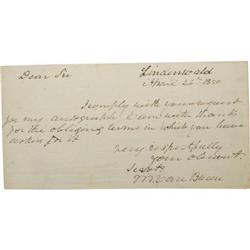 Lindenwald
April 26th 1850
Dear Sir
I comply with your request
for my autograph & am with thanks
for the obliging terms in which you have
asked for it
Very respectfully
your
Servt
M. Van Buren